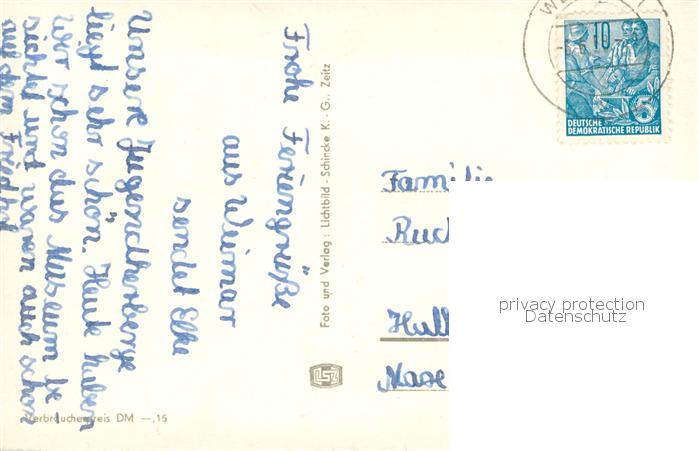 Frohe Feriengrüße
aus Weimar
sendet Elke
Unsere Jugendherberge
liegt sehr schön. Heute haben
wir schon das Museum be
sichtet und waren auch schon
auf dem Friedhof
Foto und Verlag: Lichtbild-Schincke K.-G., Zeitz
LSZ
Verbraucherpreis DM —,15
WE
10
DEUTSCHE
DEMOKRATISCHE REPUBLIK
5
Familie
privacy protection
Datenschutz